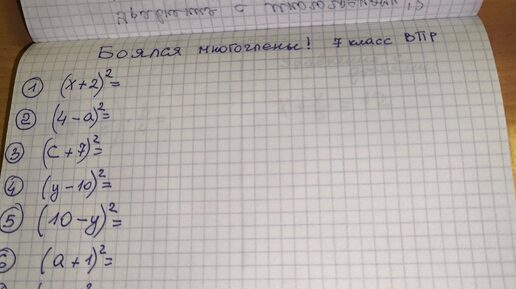 Боялся многочлены! 7 класс ВПР
① (x+2)²=
② (4-a)²=
③ (c+7)²=
④ (y-10)²=
⑤ (10-y)²=
⑥ (a+1)²=